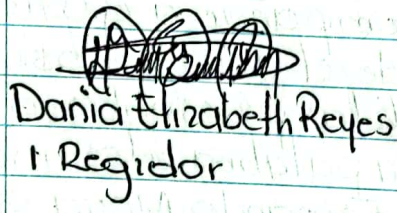 Dania Elizabeth Reyes
1 Regidor